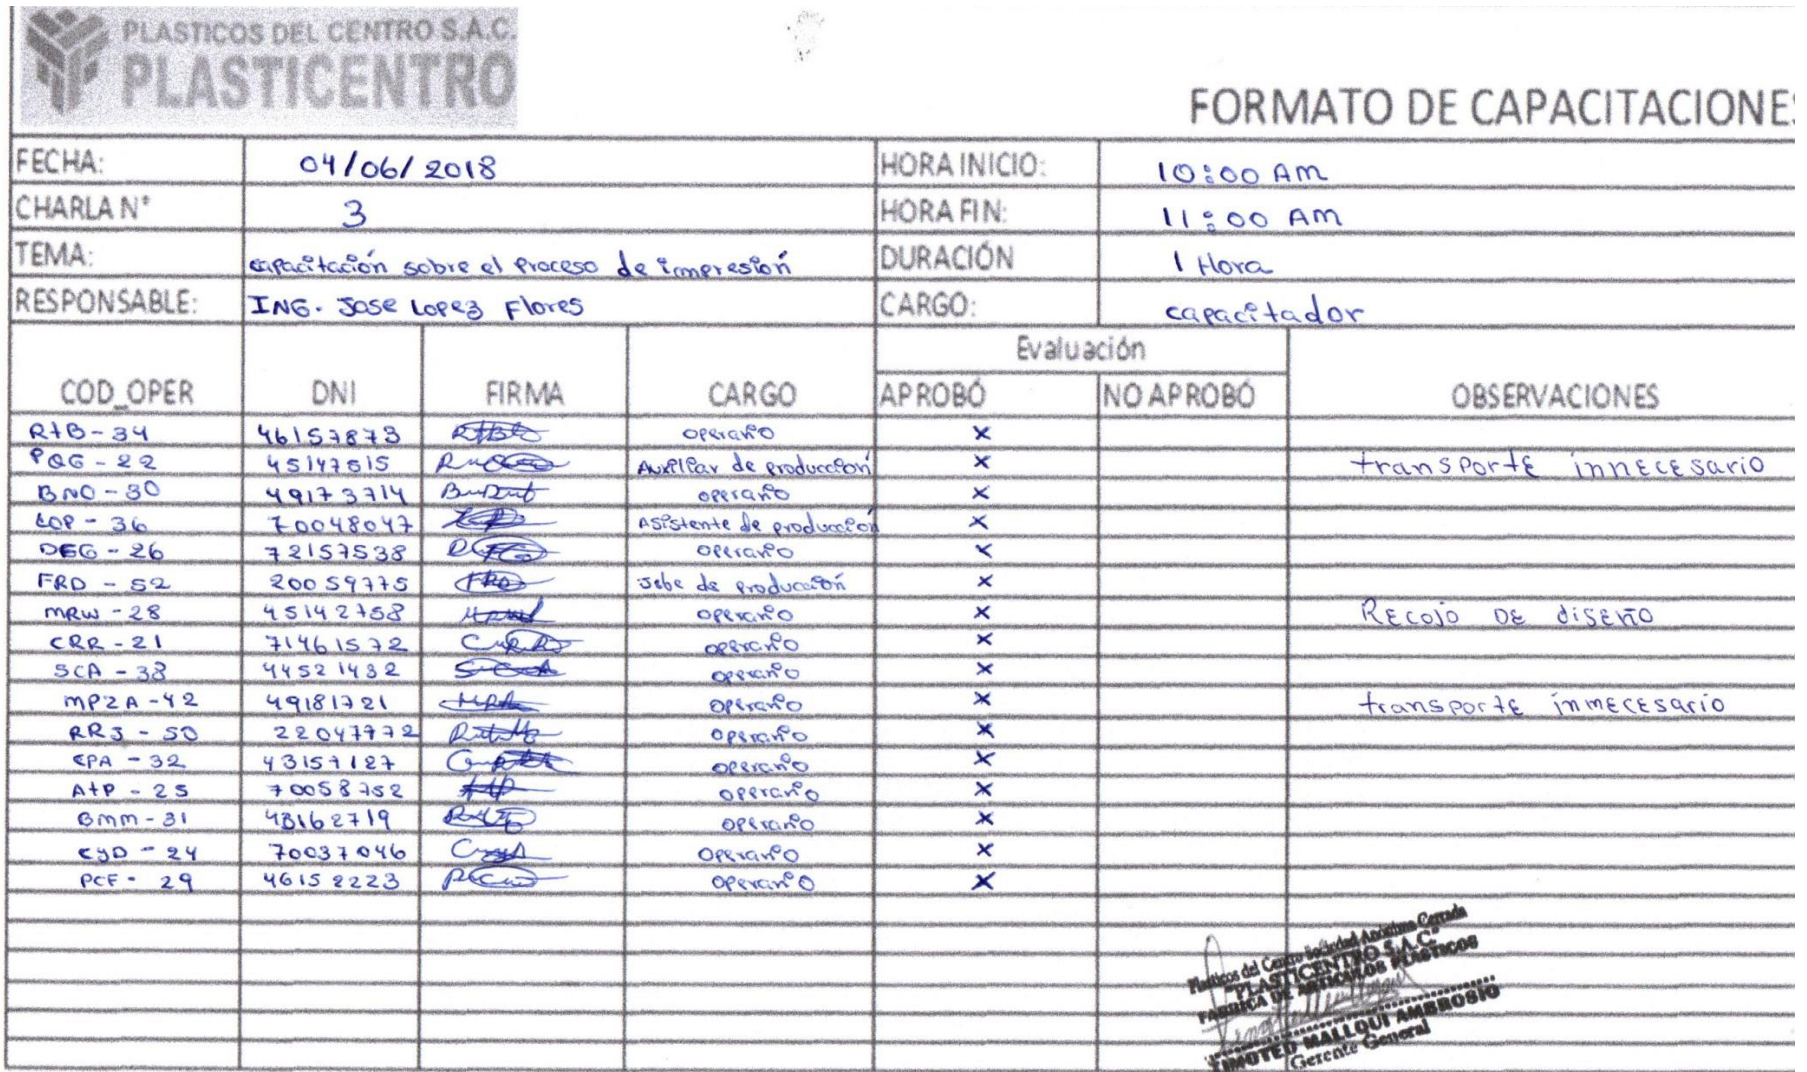 PLASTICOS DEL CENTRO S.A.C.
PLASTICENTRO
FORMATO DE CAPACITACIONES
FECHA: 04/06/2018 HORA INICIO: 10:00 AM
CHARLA N° 3 HORA FIN: 11:00 AM
TEMA: capacitación sobre el proceso de impresión DURACIÓN 1 Hora
RESPONSABLE: ING. Jose Lopez Flores CARGO: capacitador
Evaluación
COD_OPER DNI FIRMA CARGO APROBÓ NO APROBÓ OBSERVACIONES
RtB-34 46157873 operario x
PQG-22 45147515 Auxiliar de produccion x transporte innecesario
BNO-30 49173714 operario x
LOP-36 70048047 Asistente de producción x
DEG-26 72157538 operario x
FRD-52 20059775 Jebe de producción x
mRW-28 45142758 operario x RECOJO DE diSEñO
CRR-21 71461572 operario x
SCA-38 44521432 operario x
MPZA-42 49181721 operario x transporte inmecesario
RRJ-50 22047772 operario x
CPA-32 43157127 operario x
AtP-25 70058752 operario x
Bmm-31 43162719 operario x
CyD-24 70037046 operario x
PCF-29 46152223 operario x
Plasticos del Centro Sociedad Anonima Cerrada
"PLASTICENTRO S.A.C."
FABRICA DE ARTICULOS PLASTICOS
TIMOTEO MALLQUI AMBROSIO
Gerente General